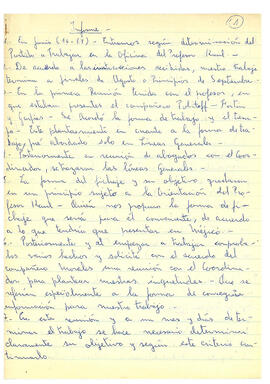 Informe.-
1.- En junio (16-17) Entramos según determinación del
Partido a Trabajar en la Oficina del Profesor
2.- De acuerdo a las instrucciones recibidas, nuestro trabajo
termina a finales de Agosto o Principios de Septiembre.-
3.- En la primera Reunión tenida con el profesor, en
que estaban presentes el compañero
y Se Acordó la forma de trabajo y el tiem-
po.- Este planteamiento en cuanto a la forma de tra-
bajo fué abordado solo en Líneas Generales.-
4.- Posteriormente en reunión de abogados con el Coor-
dinador, se las líneas Generales.-
5.- La forma del fichaje y su objetivo quedaron
en un principio sujeto a la Orientación del Pro-
fesor Quién nos propuso la forma de fi-
chaje que sería para el conveniente, de acuerdo
a lo que tendría que presentar en Méjico.-
6.- Posteriormente y al empezar a trabajar comproba-
mos varios hechos y solicité con el acuerdo del
compañero Morales una reunión con el Coordina-
dor para plantear nuestras inquietudes.- Que se
referían especialmente a la forma de conseguir
información para nuestro trabajo.-
7.- En esta reunión y a un mes y días de ter-
minar el trabajo se hace necesario determinar
claramente su objetivo y según este criterio con-
tinuarlo.-